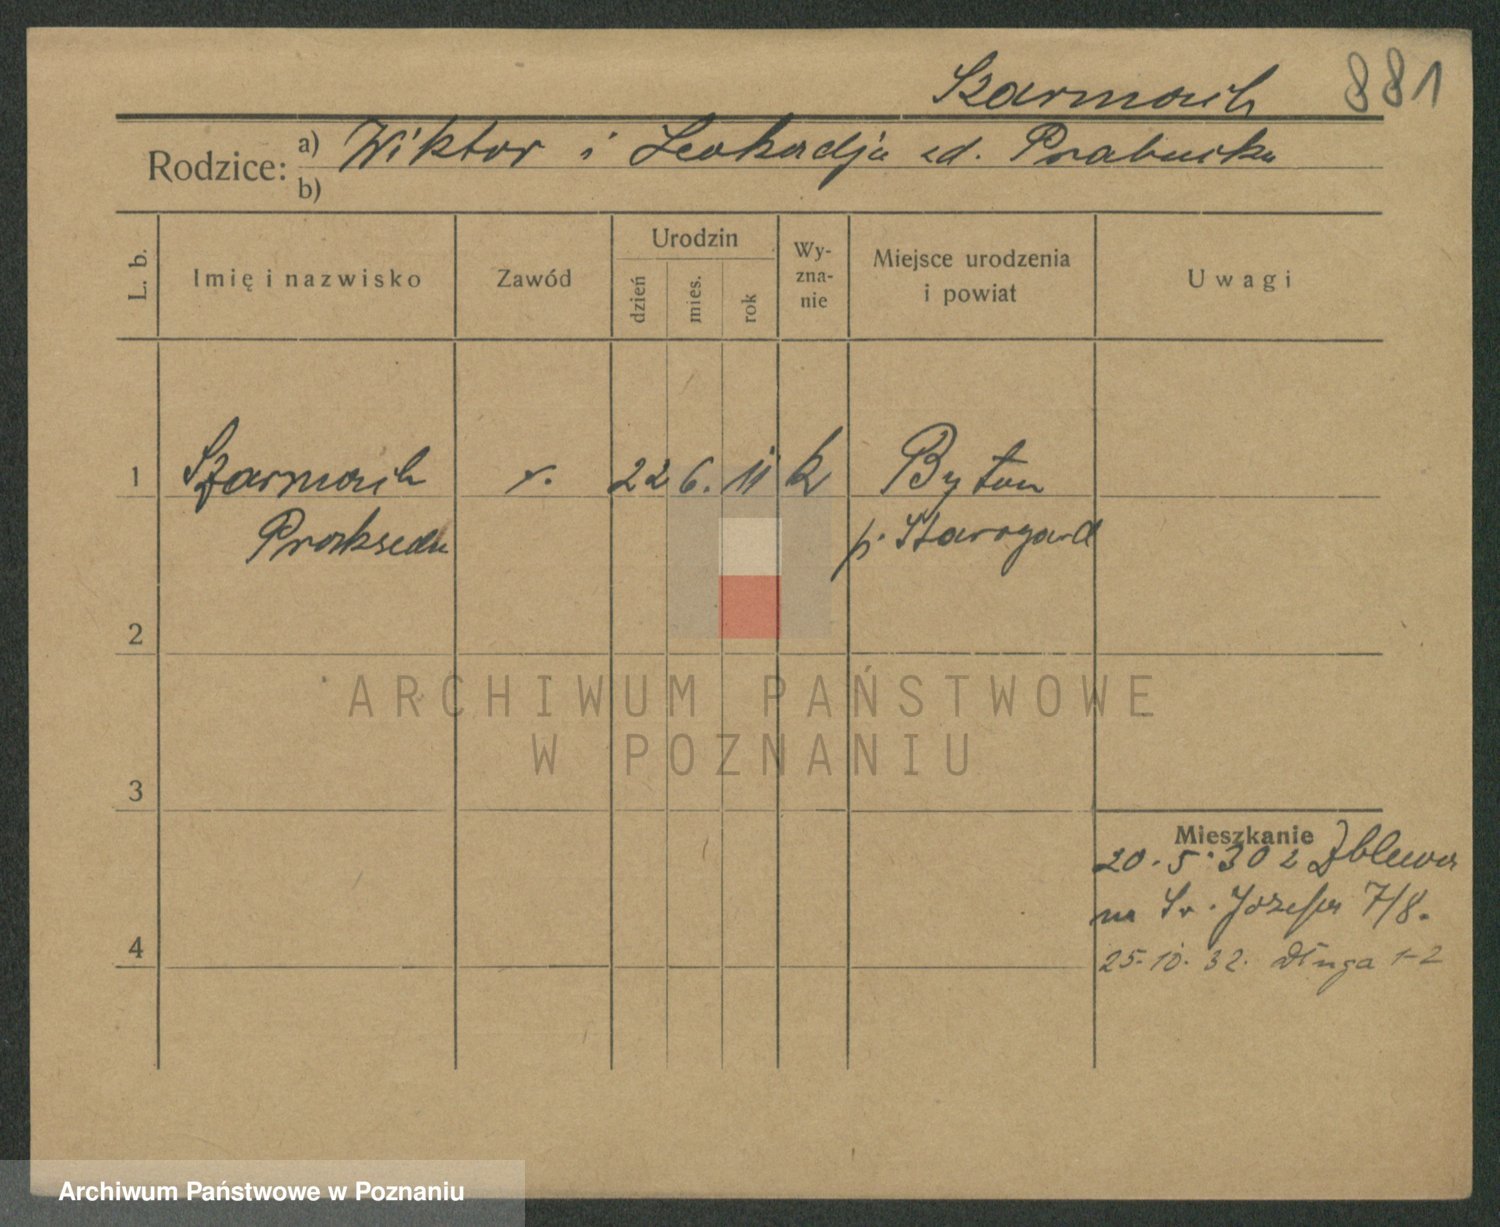 Szarmach 881
Rodzice: a) Wiktor i Leokadja zd. Prabucka
b)
L. b.
Imię i nazwisko
Zawód
Urodzin
dzień
mies.
rok
Wy-
zna-
nie
Miejsce urodzenia
i powiat
Uwagi
1 Szarmach 22 6. 11 k Byton
Prakseda p. Starogard
2
ARCHIWUM PAŃSTWOWE
W POZNANIU
3
Mieszkanie
20.5.30 z Zblewa
na Św. Józefa 7/8.
4
25.10.32. Długa 1-2
Archiwum Państwowe w Poznaniu